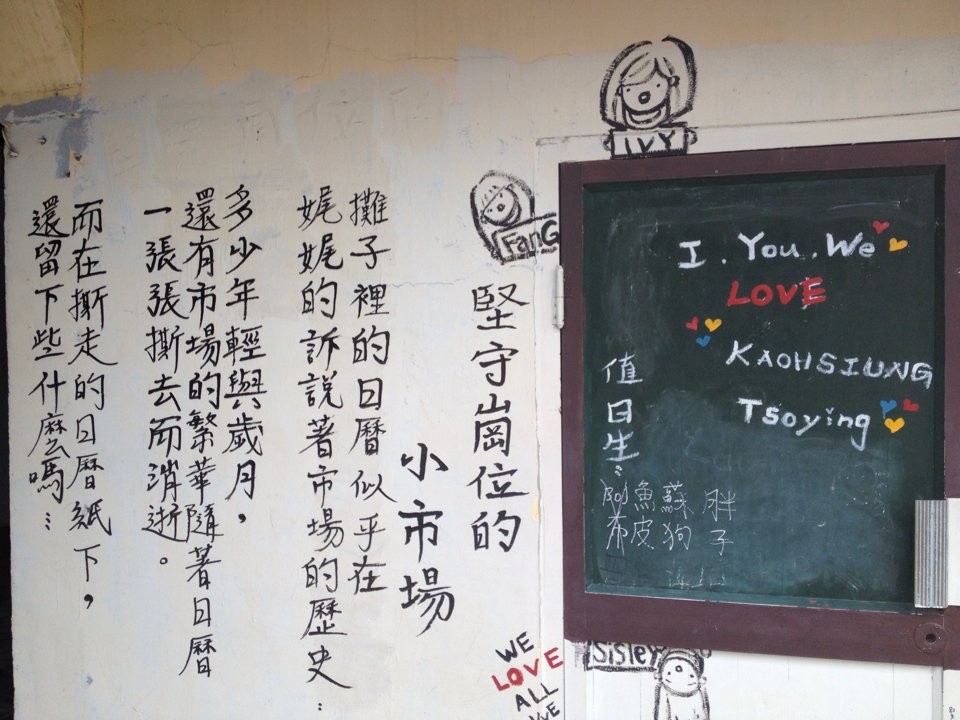 堅守崗位的
小市場
攤子裡的日曆似乎在
娓娓的訴說著市場的歷史…
多少年輕與歲月，
還有市場的繁華隨著日曆
一張張撕去而消逝。
而在撕走的日曆紙下，
還留下些什麼嗎…
IVY
FanG
I . You . We
LOVE
KAOHSIUNG
Tsoying
值日生：
胖子
蘇狗
魚皮
阿布
Sisley
WE
LOVE
ALL
WE